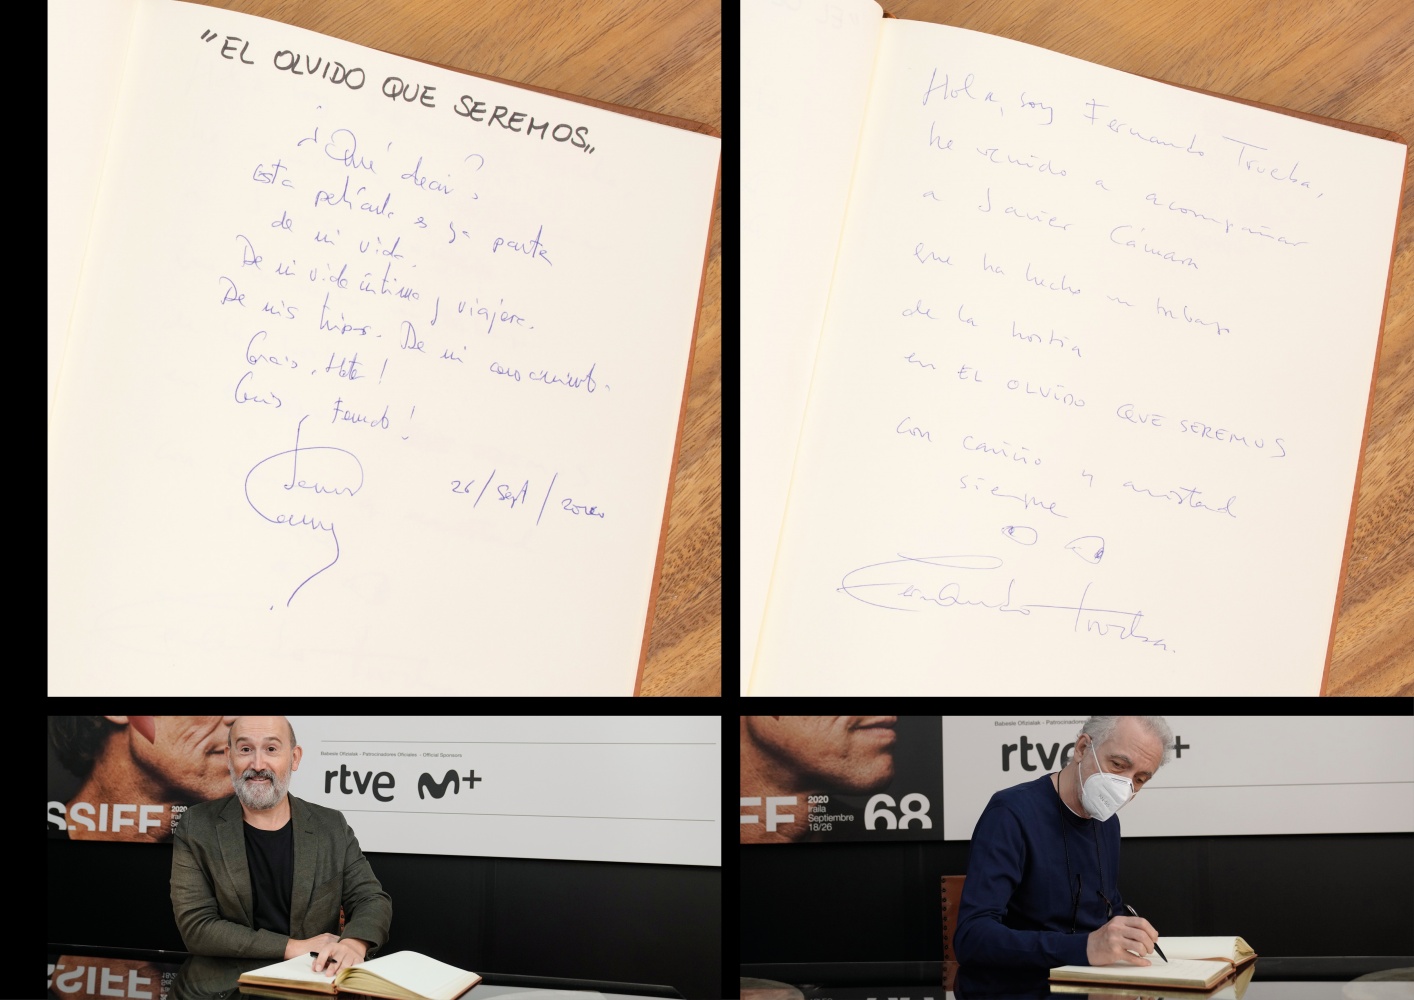 "EL OLVIDO QUE SEREMOS"
¿Qué decir?
Esta película es ya parte
de mi vida.
De mi vida íntima y viajera.
De mis tripas. De mi conocimiento.
Gracias, Héctor!
Gracias Fernando!
Javier
Cámara
26/Sept/2020
Hola, soy Fernando Trueba,
he venido a acompañar
a Javier Cámara
que ha hecho un trabajo
de la hostia
en EL OLVIDO QUE SEREMOS
con cariño y amistad
siempre
Fernando Trueba.
SSIFF
2020
Iraila
Septiembre
18/26
Babesle Ofizialak - Patrocinadores Oficiales - Official Sponsors
rtve M+
FF
2020
Iraila
Septiembre
18/26
68
Babesle Ofizialak - Patrocinadores
rtve +